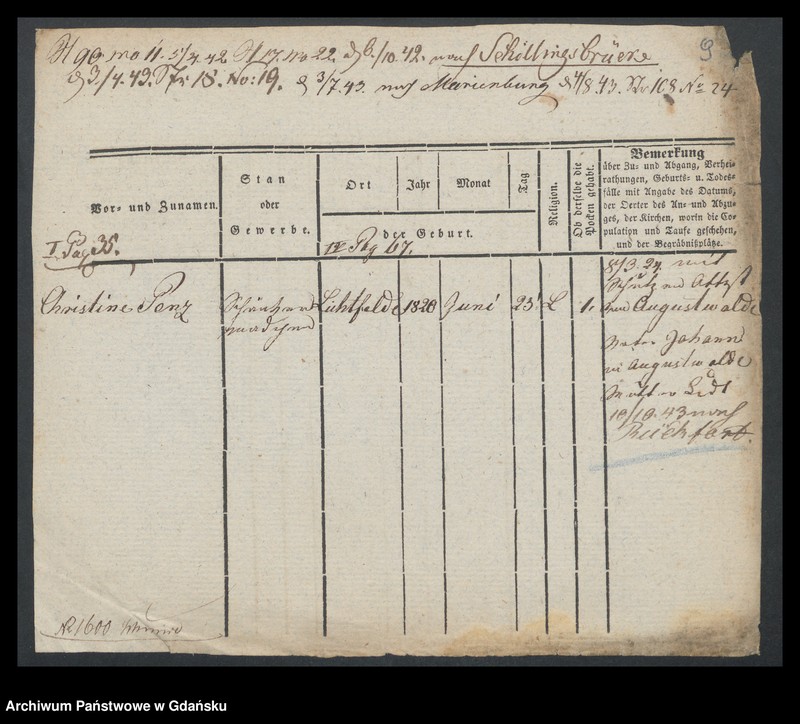 No 11. 5/4.42. No 22. 6/10.42. nach Schillingsbrücke
3/4.43. Str 18. No: 19. 3/7.43. nach Marienburg 4/8.43. Str 108 No 24
9
Vor- und Zunamen.
Stan
oder
Gewerbe.
Ort
Jahr
Monat
Tag
der Geburt.
Religion.
Ob derselbe die
Pocken gehabt.
Bemerkung
über Zu- und Abgang, Verhei-
rathungen, Geburts- u. Todes-
fälle mit Angabe des Datums,
der Oerter des An- und Abzu-
ges, der Kirchen, worin die Co-
pulation und Taufe geschehen,
und der Begräbnißplätze.
I. Pag 35.
IV Pag 67.
Christine Penz
Lichtfelde
1820
Juni
23
L
1.
mit
Attest
von Augustwalde
Vater Johann
in Augustwalde
Mutter
10/10.43 nach
Rückfort.
No 1600
Archiwum Państwowe w Gdańsku